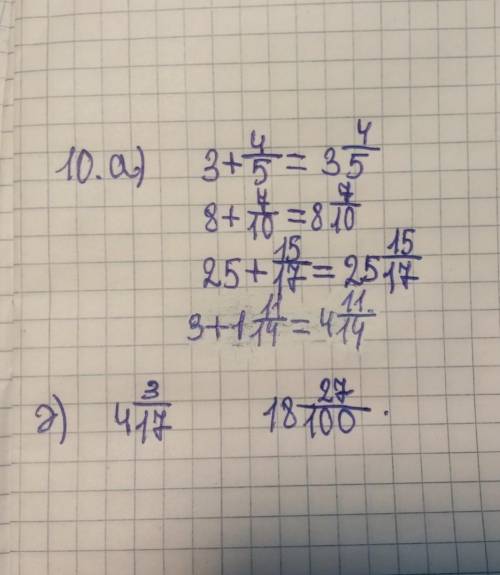 10.а) 3+4/5=3 4/5
8+7/10=8 7/10
25+15/17=25 15/17
3+1 11/14=4 11/14
г) 4 3/17 18 27/100.